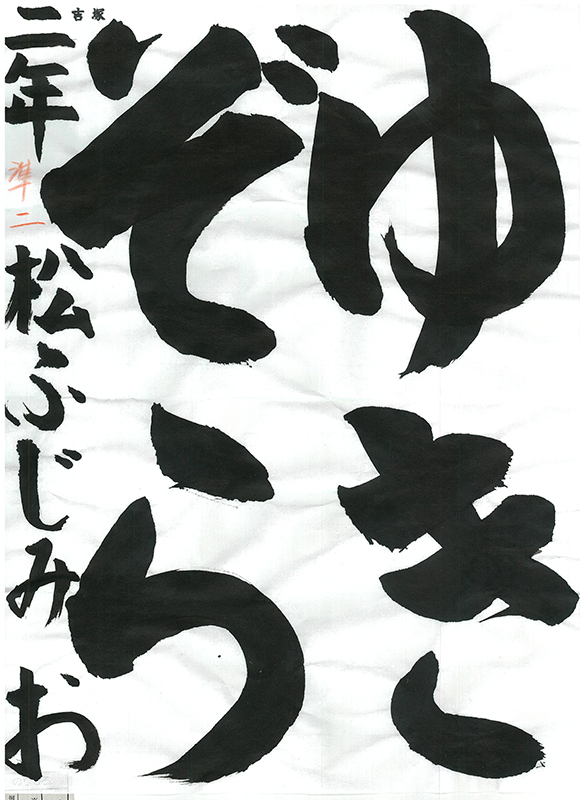 ゆき
ぞら
吉塚
二年 準二 松ふじみ お